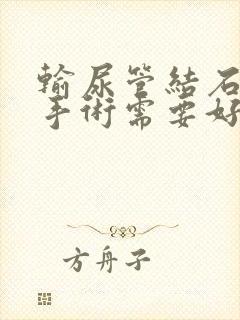 輸尿管結石
手術需要好
方舟子